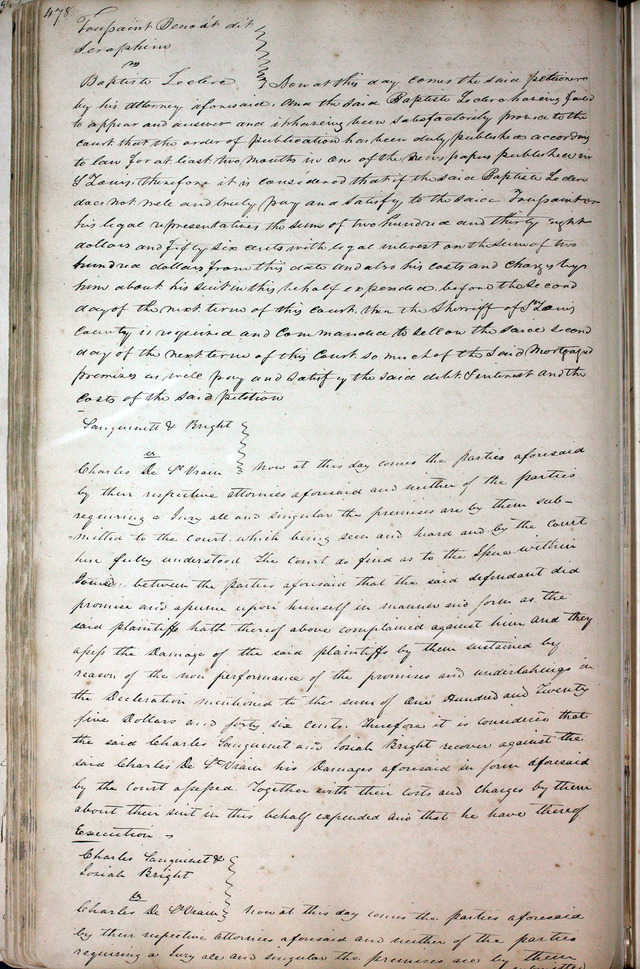 478
Toussaint Benoit dit
Seraphim
vs
Baptiste Leclerc Now at this day comes the said petitioner
by his attorney aforesaid. And the said Baptiste Leclerc having failed
to appear and answer and it having been satisfactorily proved to the
court that the order of publication has been duly published according
to law for at least two months in one of the news papers published in
St Louis, therefore it is considered that if the said Baptiste Leclerc
does not well and truly pay and satisfy to the said Toussaint or
his legal representatives the sum of two hundred and thirty eight
dollars and fifty six cents with legal interest on the sum of two
hundred dollars from this date and also his costs and charges by
him about his suit in this behalf expended before the second
day of the next term of this court. then the Sherriff of St Louis
County is required and commanded to sell on the said second
day of the next term of this Court so much of the said Mortgaged
premises as will pay and satisfy the said debt Interest and the
costs of the said petition
Sanguinett & Bright
vs
Charles De St Vrain Now at this day comes the parties aforesaid
by their respective attornies aforesaid and neither of the parties
requiring a Jury all and singular the premises are by them sub-
=mitted to the court. which being seen and heard and by the court
here fully understood The court do find as to the Issue within
Joined between the parties aforesaid that the said defendant did
promise and assume upon himself in manner and form as the
said plaintiffs hath thereof above complained against him and they
assess the Damage of the said plaintiffs by them sustained by
reason of the non performance of the promises and undertakings in
the Declaration mentioned to the sum of One Hundred and Twenty
five Dollars and forty six cents. Therefore it is considered that
the said Charles Sanguinet and Josiah Bright recover against the
said Charles De St Vrain his Damages aforesaid in form aforesaid
by the court assessed. Together with their costs and charges by them
about their suit in this behalf expended and that he have thereof
Execution
Charles Sanguinet &
Josiah Bright
vs
Charles De St Vrain Now at this day comes the parties aforesaid
by their respective attornies aforesaid and neither of the parties
requiring a Jury all and singular the premises are by them